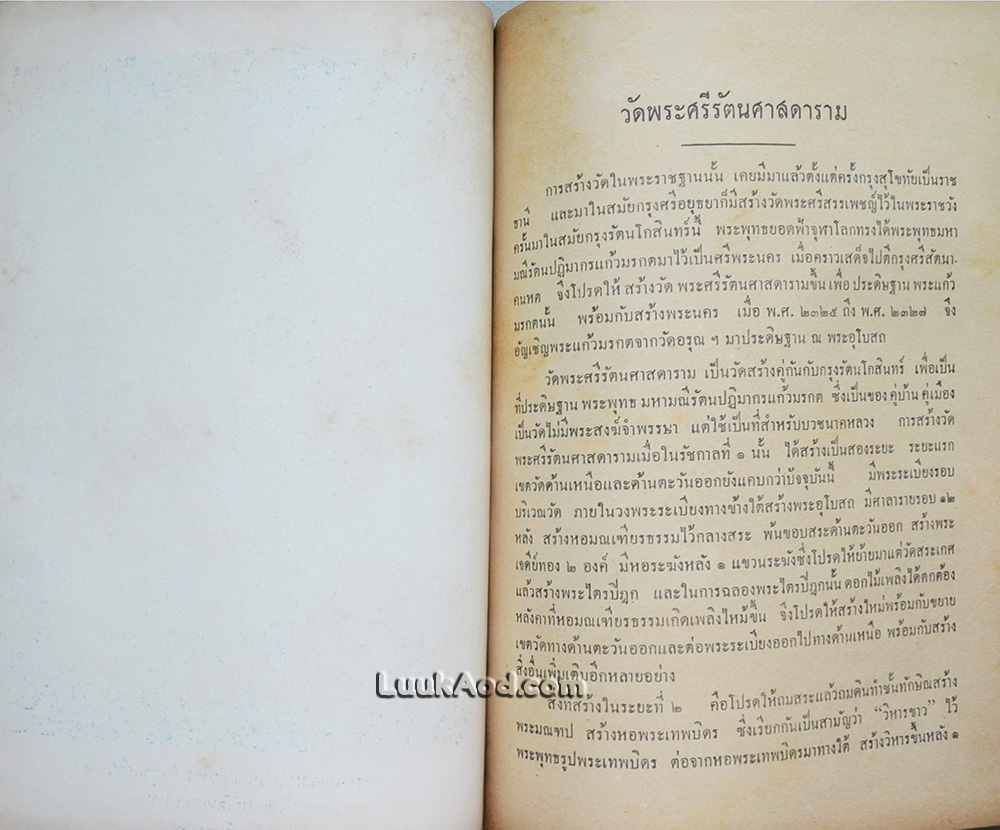 วัดพระศรีรัตนศาสดาราม
การสร้างวัดในพระราชฐานนั้น เคยมีมาแล้วตั้งแต่ครั้งกรุงสุโขทัยเป็นราช
ธานี และมาในสมัยกรุงศรีอยุธยาก็มีสร้างวัดพระศรีสรรเพชญ์ไว้ในพระราชวัง
ครั้นมาในสมัยกรุงรัตนโกสินทร์นี้ พระพุทธยอดฟ้าจุฬาโลกทรงได้พระพุทธมหา
มณีรัตนปฏิมากรแก้วมรกตมาไว้เป็นศรีพระนคร เมื่อคราวเสด็จไปตีกรุงศรีสัตนา-
คนหุต จึงโปรดให้ สร้างวัด พระศรีรัตนศาสดารามขึ้น เพื่อ ประดิษฐาน พระแก้ว
มรกตนั้น พร้อมกับสร้างพระนคร เมื่อ พ.ศ. ๒๓๒๕ ถึง พ.ศ. ๒๓๒๗ จึง
อัญเชิญพระแก้วมรกตจากวัดอรุณ ฯ มาประดิษฐาน ณ พระอุโบสถ
วัดพระศรีรัตนศาสดาราม เป็นวัดสร้างคู่กันกับกรุงรัตนโกสินทร์ เพื่อเป็น
ที่ประดิษฐาน พระพุทธ มหามณีรัตนปฏิมากรแก้วมรกต ซึ่งเป็นของ คู่บ้าน คู่เมือง
เป็นวัดไม่มีพระสงฆ์จำพรรษา แต่ใช้เป็นที่สำหรับบวชนาคหลวง การสร้างวัด
พระศรีรัตนศาสดารามเมื่อในรัชกาลที่ ๑ นั้น ได้สร้างเป็นสองระยะ ระยะแรก
เขตวัดด้านเหนือและด้านตะวันออกยังแคบกว่าปัจจุบันนี้ มีพระระเบียงรอบ
บริเวณวัด ภายในวงพระระเบียงทางข้างใต้สร้างพระอุโบสถ มีศาลารายรอบ ๑๒
หลัง สร้างหอมณเฑียรธรรมไว้กลางสระ พ้นขอบสระด้านตะวันออก สร้างพระ
เจดีย์ทอง ๒ องค์ มีหอระฆังหลัง ๑ แขวนระฆังซึ่งโปรดให้ย้ายมาแต่วัดสระเกศ
แล้วสร้างพระไตรปิฎก และในการฉลองพระไตรปิฎกนั้น ดอกไม้เพลิงได้ตกต้อง
หลังคาที่หอมณเฑียรธรรมเกิดเพลิงไหม้ขึ้น จึงโปรดให้สร้างใหม่พร้อมกับขยาย
เขตวัดทางด้านตะวันออกและต่อพระระเบียงออกไปทางด้านเหนือ พร้อมกับสร้าง
สิ่งอื่นเพิ่มเติมอีกหลายอย่าง
LuukAod.com
สิ่งที่สร้างในระยะที่ ๒ คือโปรดให้ถมสระแล้วถมดินทำชั้นทักษิณสร้าง
พระมณฑป สร้างหอพระเทพบิดร ซึ่งเรียกกันเป็นสามัญว่า “วิหารขาว” ไว้
พระพุทธรูปพระเทพบิดร ต่อจากหอพระเทพบิดรมาทางใต้ สร้างวิหารขึ้นหลัง ๑